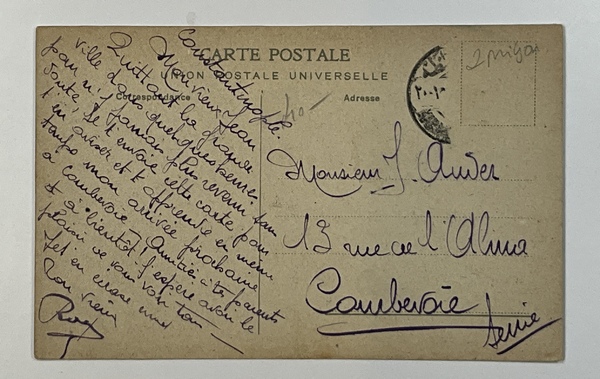 CARTE POSTALE
UNION POSTALE UNIVERSELLE
Correspondance
Adresse
Constantinople.
Mon vieux Jean
Quittant la grande
ville dans quelques heures
pour n'y jamais plus revenir sans
doute, je t'envoie cette carte pour
t'en aviser et t'apprendre en même
temps mon arrivée prochaine
à Courbevoie. Amitiés à tes parents
et à bientôt j'espère avoir le
plaisir de vous voir tous
Ton vieux
Monsieur J.
13 rue de l'Alma
Courbevoie
Seine